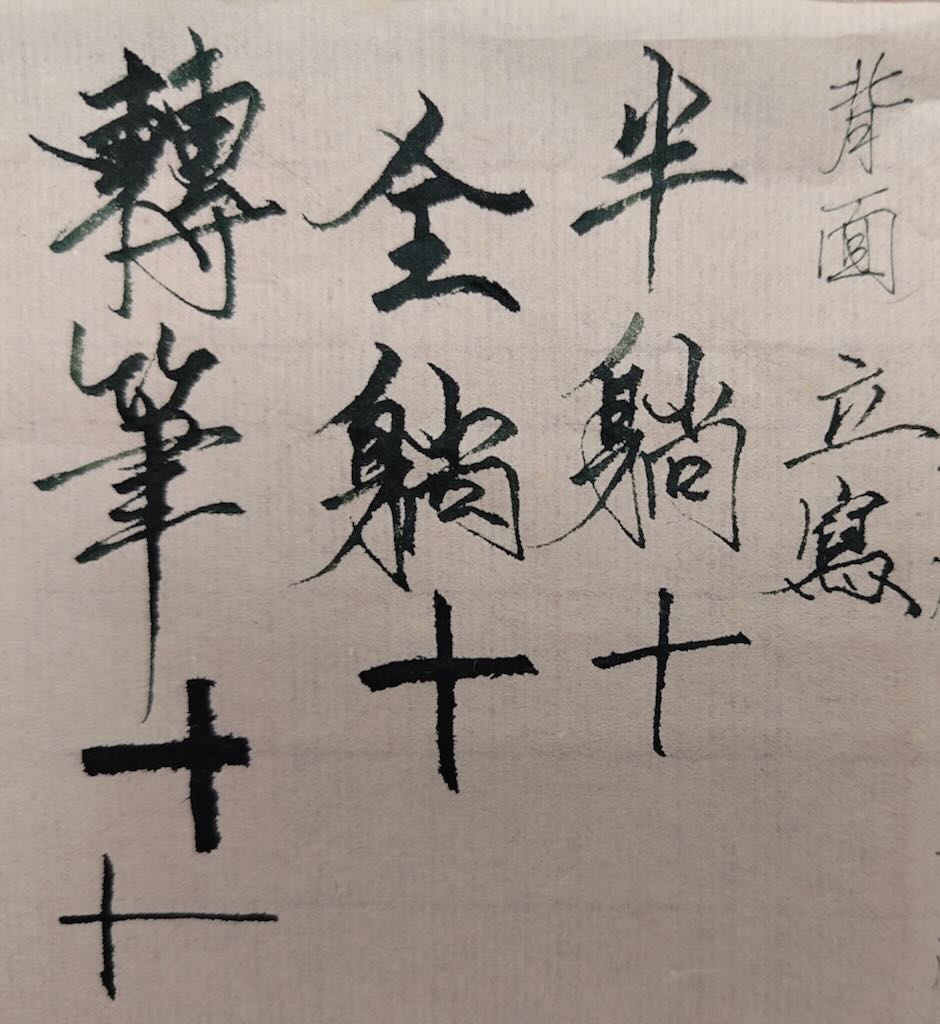 背面 立寫
半躺十
全躺十
轉筆十十